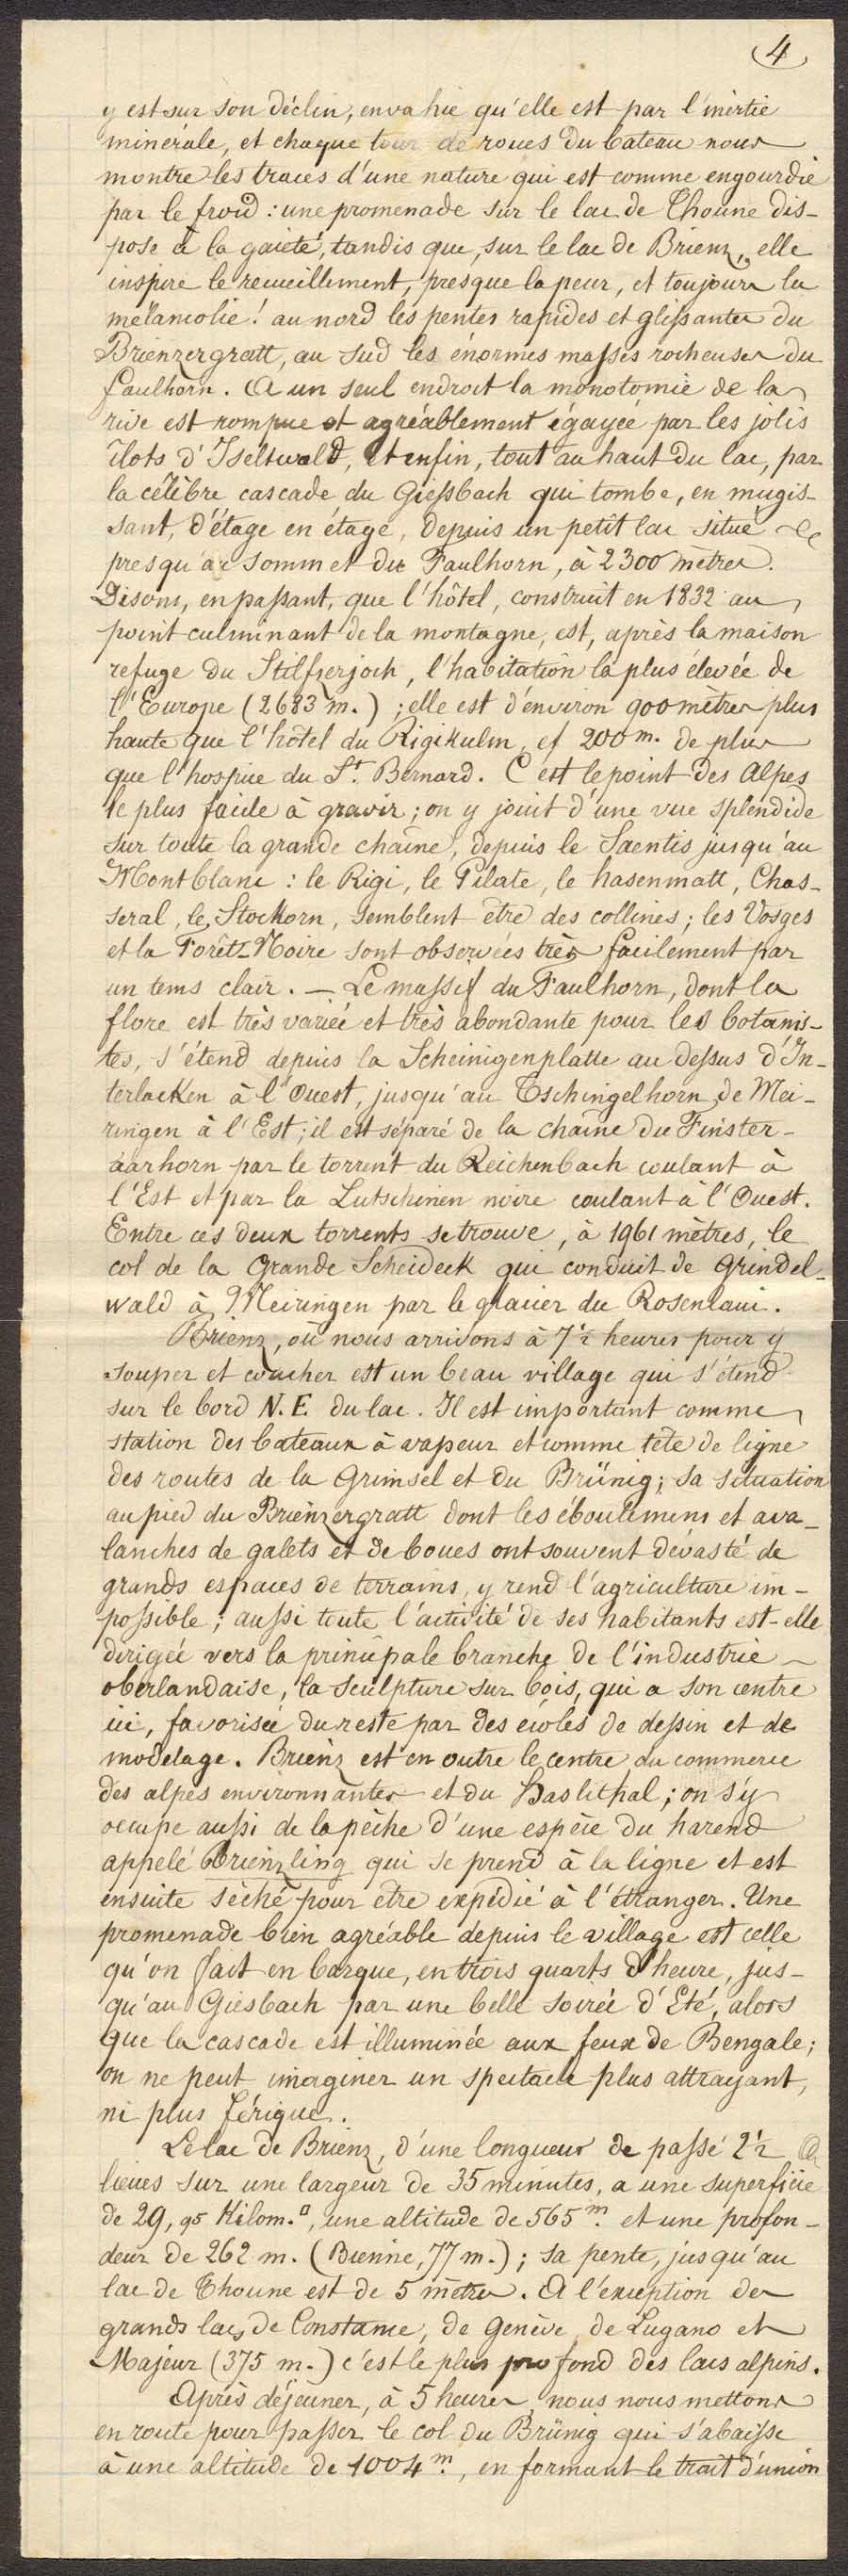 4
y est sur son déclin, envahie qu'elle est par l'inertie
minérale, et chaque tour de roues du bateau nous
montre les traces d'une nature qui est comme engourdie
par le froid : une promenade sur le lac de Thoune dis-
pose à la gaieté, tandis que, sur le lac de Brienz, elle
inspire le recueillement, presque la peur, et toujours la
mélancolie ! au nord les pentes rapides et glissantes du
Brienzergratt, au sud les énormes masses rocheuses du
faulhorn. A un seul endroit la monotomie de la
rive est rompue et agréablement égayée par les jolis
îlots d'Iseltwald, et enfin, tout au haut du lac, par
la célèbre cascade du Giessbach qui tombe, en mugis-
sant, d'étage en étage, depuis un petit lac situé
presqu'au sommet du Faulhorn, à 2300 mètres.
Disons, en passant, que l'hôtel, construit en 1832 au
point culminant de la montagne, est, après la maison
refuge du Stilfserjoch, l'habitation la plus élevée de
l'Europe (2683 m.) ; elle est d'environ 900 mètres plus
haute que l'hôtel du Rigikulm, et 200 m. de plus
que l'hospice du St. Bernard. C'est le point des Alpes
le plus facile à gravir ; on y jouit d'une vue splendide
sur toute la grande chaîne, depuis le Saentis jusqu'au
Montblanc : le Rigi, le Pilate, le hasenmatt, Chas-
seral, le Stockorn, semblent être des collines ; les Vosges
et la Forêt-Noire sont observées très facilement par
un tems clair. — Le massif du Faulhorn, dont la
flore est très variée et très abondante pour les botanis-
tes, s'étend depuis la Scheinigenplatte au dessus d'In-
terlacken à l'Ouest, jusqu'au Tschingelhorn de Mei-
ringen à l'Est ; il est séparé de la chaîne du Finster-
aarhorn par le torrent du Reichenbach coulant à
l'Est et par la Lutschinen noire coulant à l'Ouest.
Entre ces deux torrents se trouve, à 1961 mètres, le
col de la Grande Scheideck qui conduit de Grindel-
wald à Meiringen par le glacier du Rosenlaui.
Brienz, où nous arrivons à 7½ heures pour y
souper et coucher est un beau village qui s'étend
sur le bord N.E. du lac. Il est important comme
station des bateaux à vapeur et comme tête de ligne
des routes de la Grimsel et du Brünig ; sa situation
au pied du Brienzergratt dont les éboulemens et ava-
lanches de galets et de boues ont souvent dévasté de
grands espaces de terrains, y rend l'agriculture im-
possible ; aussi toute l'activité de ses habitants est-elle
dirigée vers la principale branche de l'industrie
oberlandaise, la sculpture sur bois, qui a son centre
ici, favorisée du reste par des écoles de dessin et de
modelage. Brienz est en outre le centre du commerce
des alpes environnantes et du Haslithal ; on s'y
occupe aussi de la pêche d'une espèce du harend
appelé Brienzling qui se prend à la ligne et est
ensuite séché pour être expédié à l'étranger. Une
promenade bien agréable depuis le village est celle
qu'on fait en barque, en trois quarts d'heure, jus-
qu'au Giesbach par une belle soirée d'Eté, alors
que la cascade est illuminée aux feux de Bengale ;
on ne peut imaginer un spectacle plus attrayant,
ni plus férique.
Le lac de Brienz, d'une longueur de passé 2½
lieues sur une largeur de 35 minutes, a une superficie
de 29,95 Kilom.□, une altitude de 565 m. et une profon-
deur de 262 m. (Bienne, 77 m.) ; sa pente, jusqu'au
lac de Thoune est de 5 mètres. A l'exception des
grands lacs de Constance, de Genève, de Lugano et
Majeur (375 m.) c'est le plus profond des lacs alpins.
Après déjeuner, à 5 heures, nous nous mettons
en route pour passer le col du Brünig qui s'abaisse
à une altitude de 1004 m., en formant le trait d'union